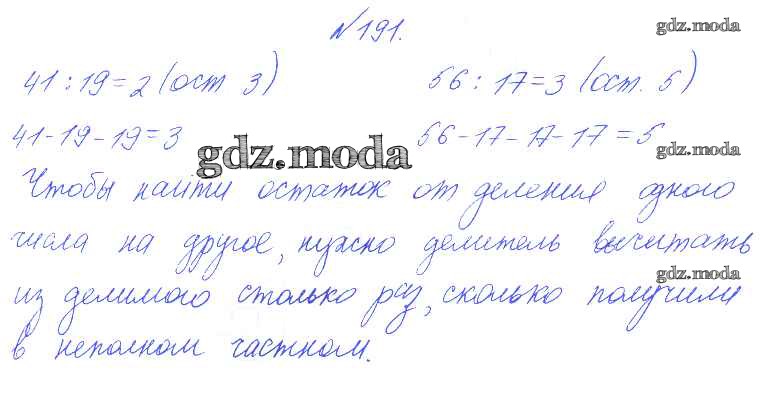 №191. gdz.moda
41:19=2(ост 3) 56:17=3(ост. 5)
41-19-19=3 gdz.moda 56-17-17-17=5 gdz.moda
Чтобы найти остаток от деления одного
числа на другое, нужно делитель вычитать
gdz.moda
из делимого столько раз, сколько получили
в неполном частном.